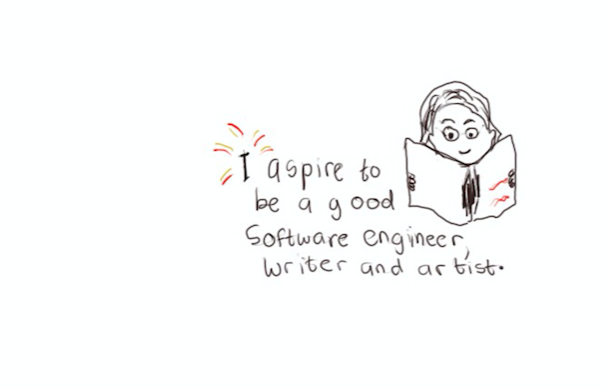 I aspire to
be a good
Software engineer,
writer and artist.